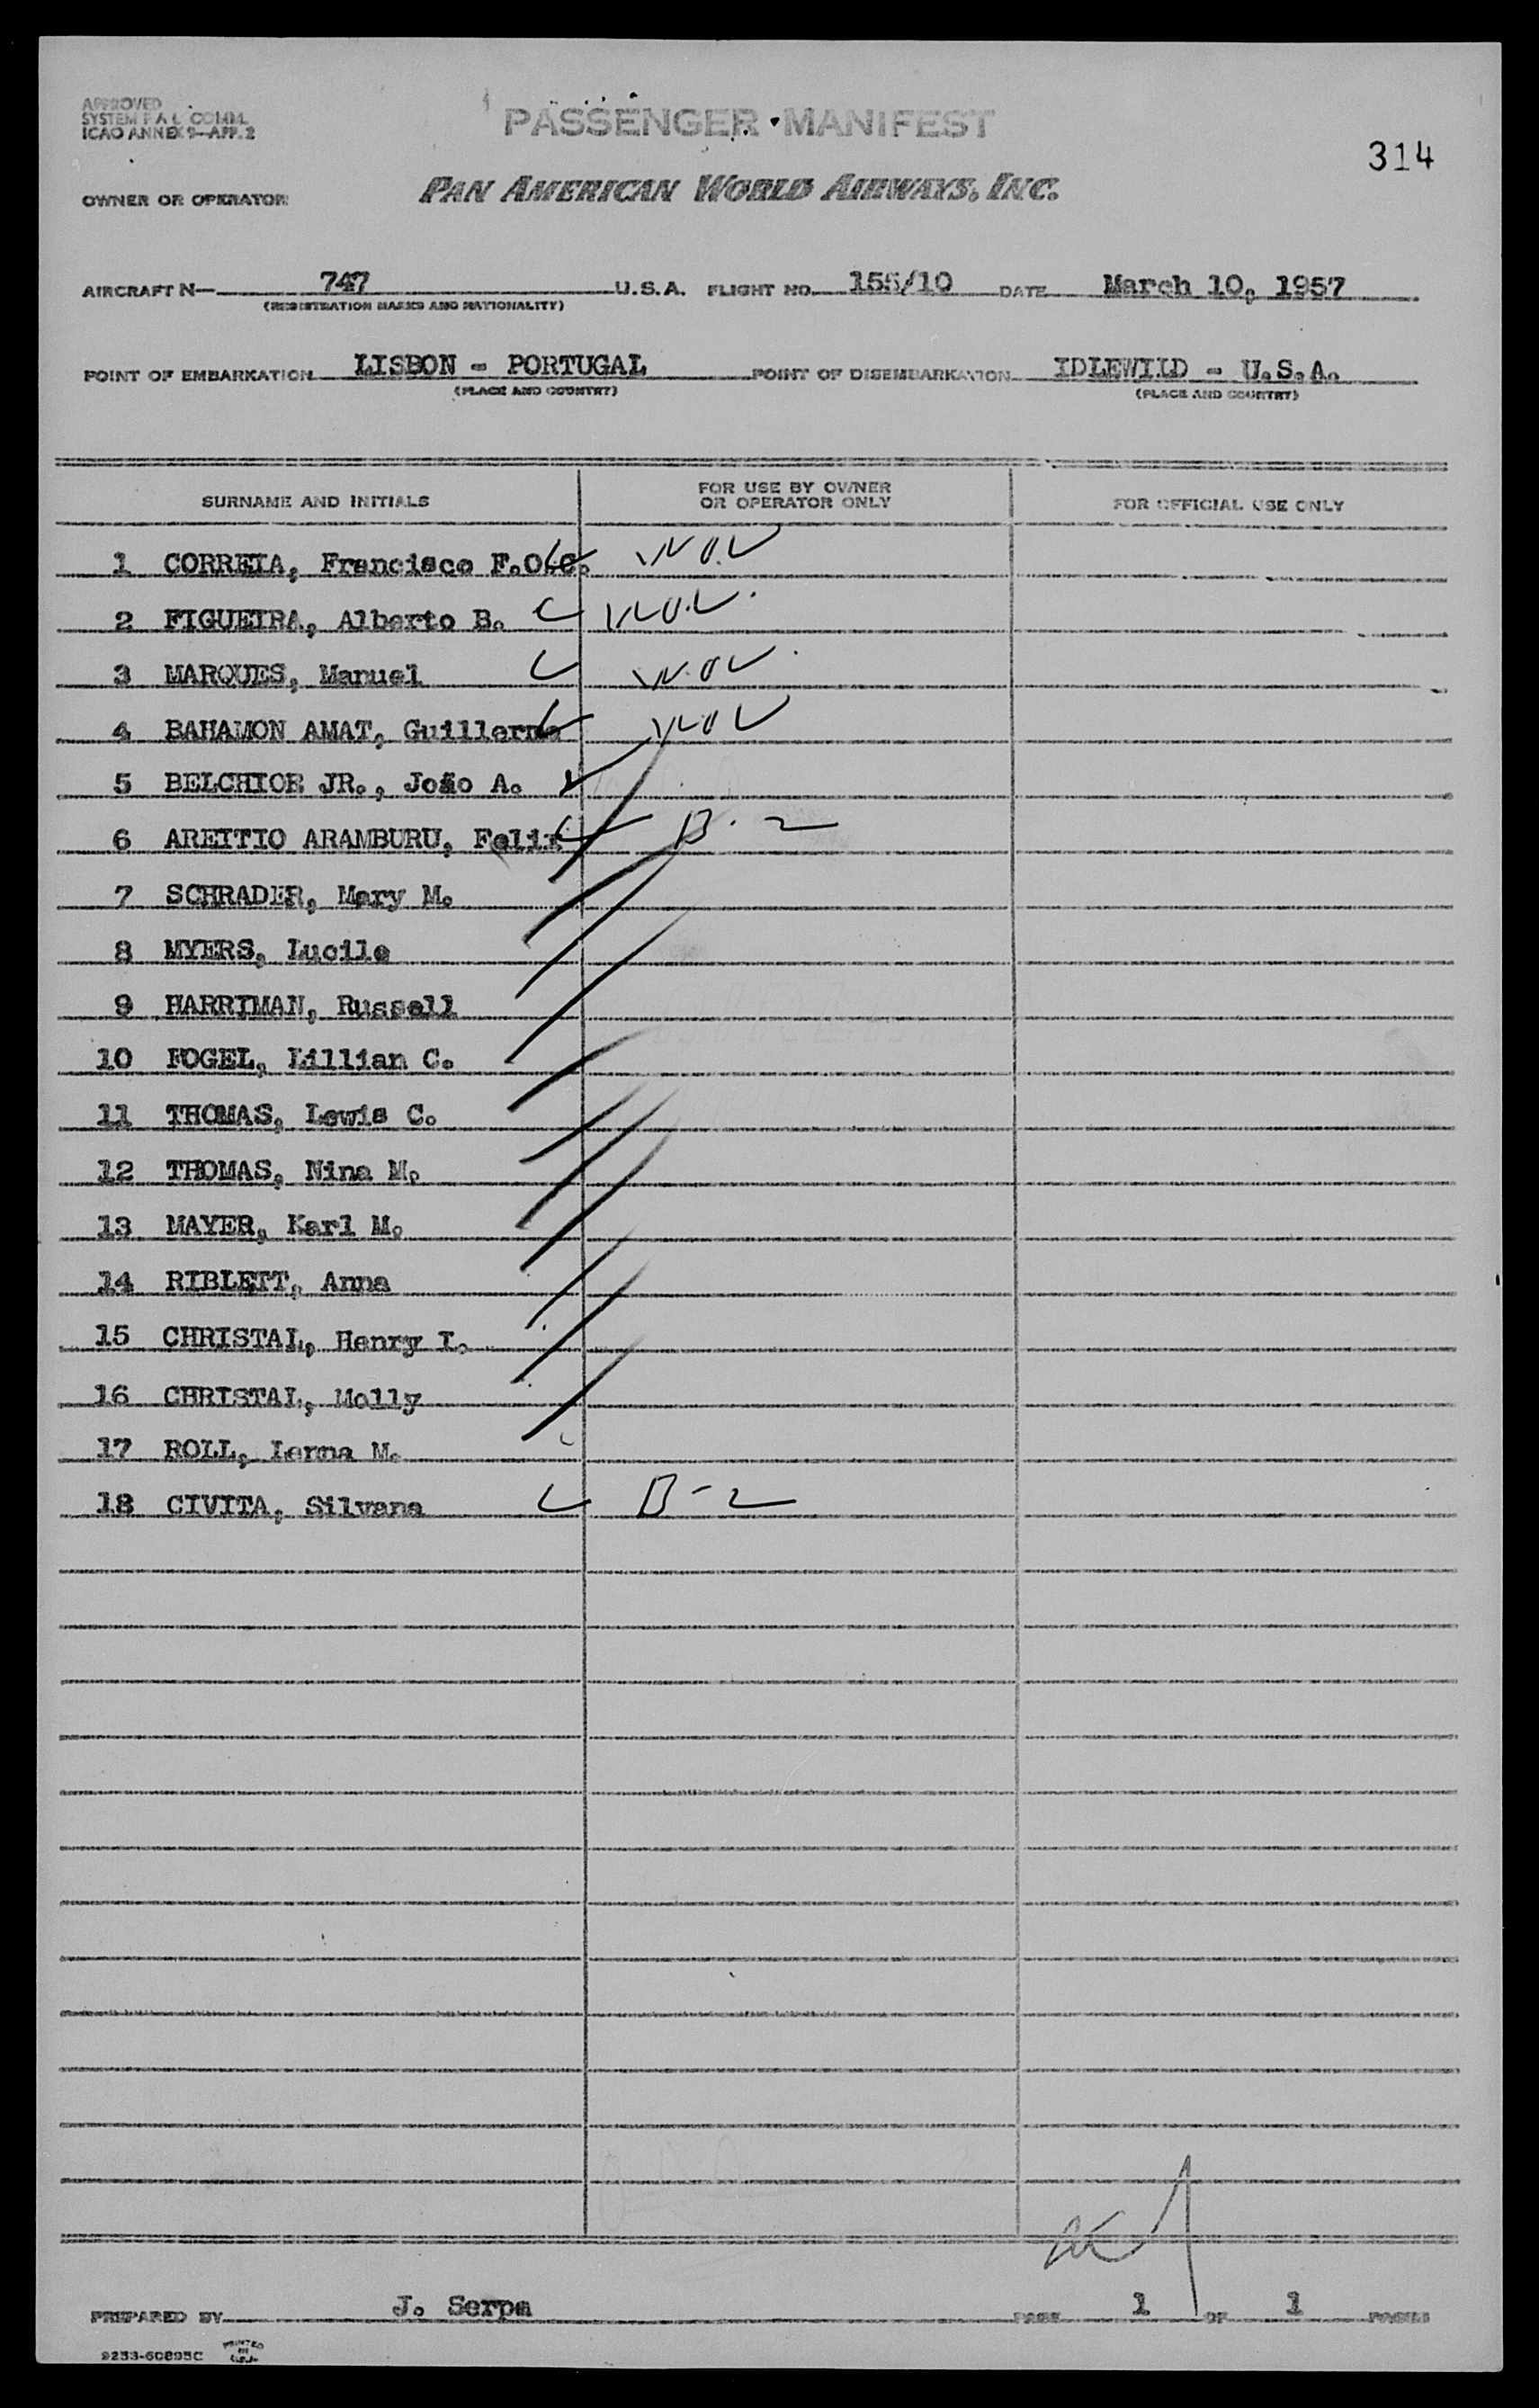 APPROVED
SYSTEM F A L COMM.
ICAO ANNEX 9—APP. 2
PASSENGER MANIFEST
314
OWNER OR OPERATOR PAN AMERICAN WORLD AIRWAYS, INC.
AIRCRAFT N— 747 U.S.A. FLIGHT NO. 155/10 DATE March 10, 1957
(REGISTRATION MARKS AND NATIONALITY)
POINT OF EMBARKATION LISBON - PORTUGAL POINT OF DISEMBARKATION IDLEWILD - U.S.A.
(PLACE AND COUNTRY) (PLACE AND COUNTRY)
SURNAME AND INITIALS FOR USE BY OWNER OR OPERATOR ONLY FOR OFFICIAL USE ONLY
1 CORREIA, Francisco
2 FIGUEIRA, Alberto B.
3 MARQUES, Manuel
4 BAHAMON AMAT, Guillermo
5 BELCHIOR JR., João A.
6 AREITIO ARAMBURU, Felix B-2
7 SCHRADER, Mary M.
8 MYERS, Lucile
9 HARRIMAN, Russell
10 FOGEL, Lillian C.
11 THOMAS, Lewis C.
12 THOMAS, Nina M.
13 MAYER, Karl M.
14 RIBLETT, Anna
15 CHRISTAL, Henry I.
16 CHRISTAL, Molly
17 ROLL, Lerma M.
18 CIVITA, Silvana B-2
PREPARED BY J. Serpa PAGE 1 OF 1 PAGES
9253-60895C PRINTED IN U.S.A.